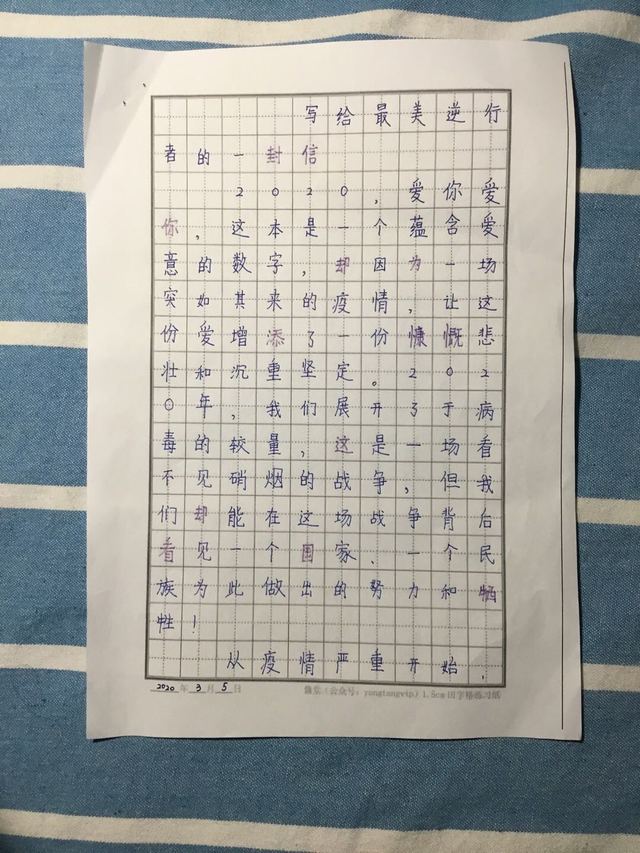 写给最美逆行
者的一封信
2020，爱你爱
你，这本是一个蕴含爱
意的数字，却因为一场
突如其来的疫情，让这
份爱增添了一份慷慨悲
壮和沉重坚定。202
0年，我们展开了于病
毒的较量，这是一场看
不见硝烟的战争，但我
们却能在这场战争背后
看见一个国家、一个民
族为此做出的努力和牺
牲！
从疫情严重开始，
2020年3月5日 (公众号：yongtangvip) 1.5cm田字格练习纸